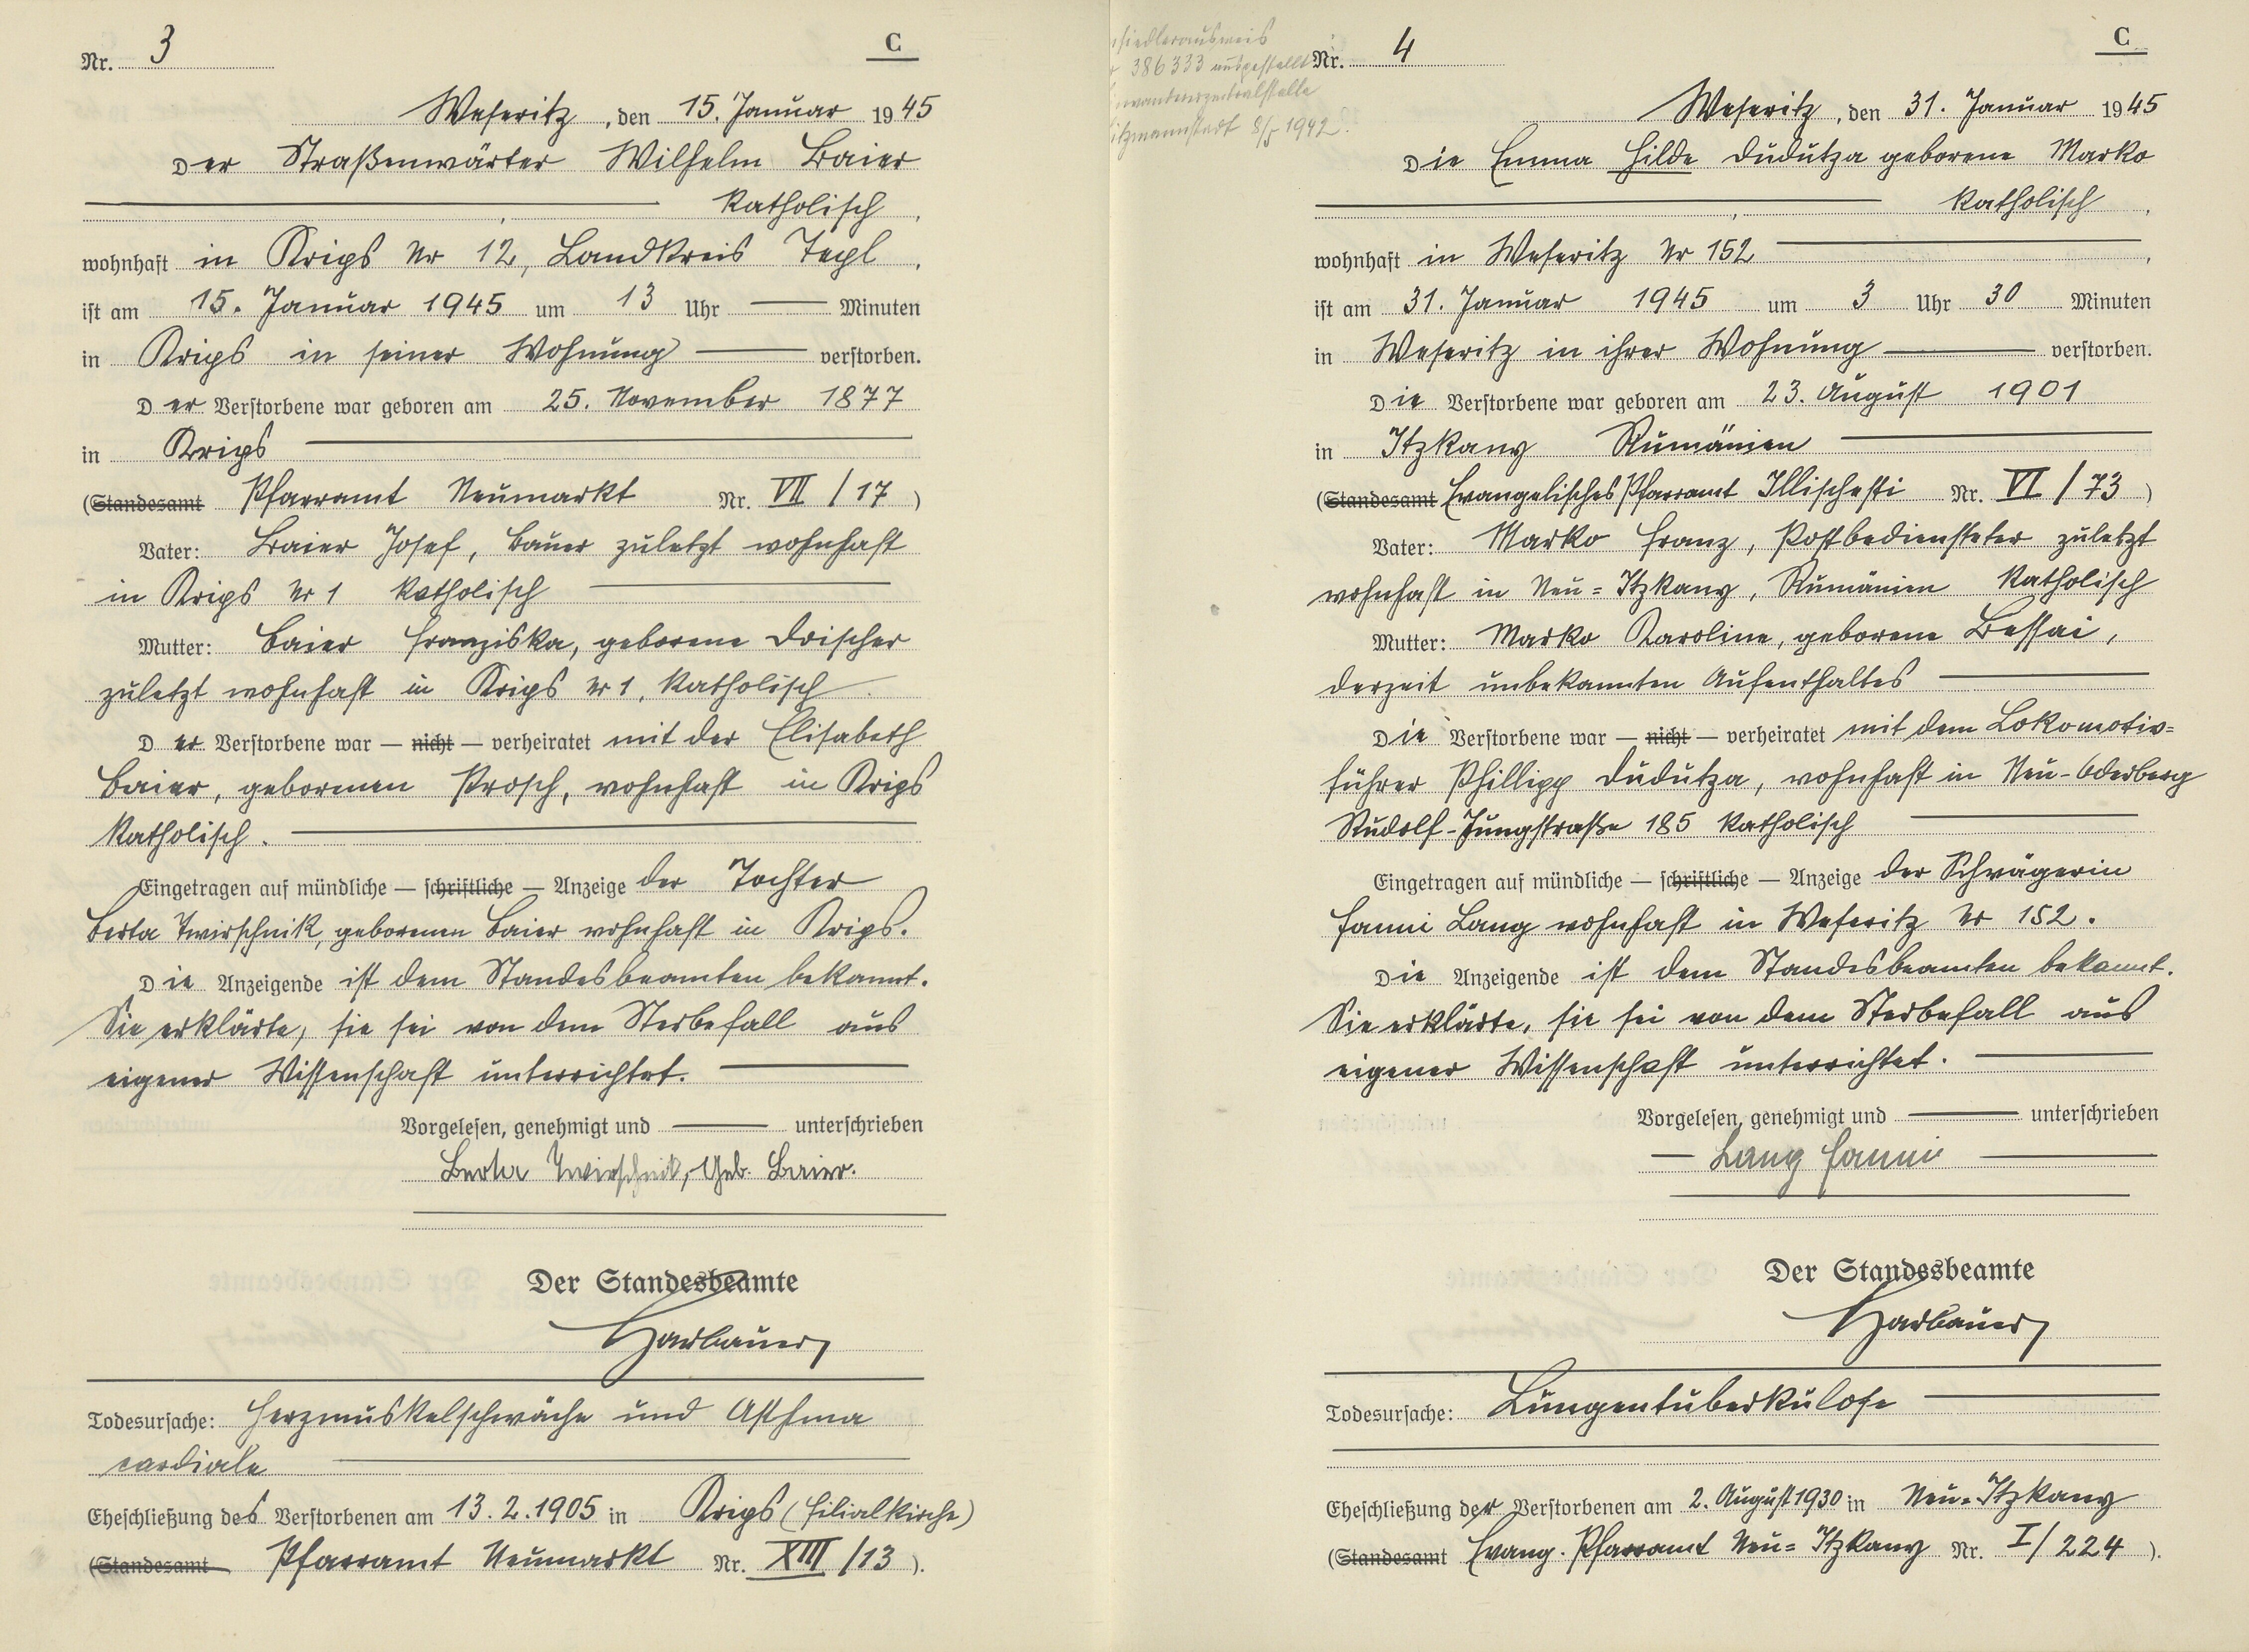 Nr. 3
C
Weseritz, den 15. Januar 1945
Der Straßenwärter Wilhelm Baier
katholisch,
wohnhaft in Krips Nr 12, Landkreis Tepl,
ist am 15. Januar 1945 um 13 Uhr — Minuten
in Krips in seiner Wohnung — verstorben.
Der Verstorbene war geboren am 25. November 1877
in Krips
(Standesamt Pfarramt Neumarkt Nr. VII/17)
Vater: Baier Josef, Bauer zuletzt wohnhaft
in Krips Nr 1 katholisch
Mutter: Baier Franziska, geborene Drischer
zuletzt wohnhaft in Krips Nr 1, katholisch
Der Verstorbene war — nicht — verheiratet mit der Elisabeth
Baier, geborenen Prosch, wohnhaft in Krips
katholisch.
Eingetragen auf mündliche — schriftliche — Anzeige der Tochter
Berta Twirschnik, geborenen Baier wohnhaft in Krips.
Die Anzeigende ist dem Standesbeamten bekannt.
Sie erklärte, sie sei von dem Sterbefall aus
eigener Wissenschaft unterrichtet.
Vorgelesen, genehmigt und — unterschrieben
Berta Twirschnik, Geb. Baier.
Der Standesbeamte
Harbauer
Todesursache: Herzmuskelschwäche und Asthma
cardiale
Eheschließung des Verstorbenen am 13.2.1905 in Krips (Filialkirche)
(Standesamt Pfarramt Neumarkt Nr. XIII/13).
386333 ausgestellt
8/5 1942.
Nr. 4
C
Weseritz, den 31. Januar 1945
Die Emma Hilde Dudutza geborene Marko
katholisch,
wohnhaft in Weseritz Nr 152,
ist am 31. Januar 1945 um 3 Uhr 30 Minuten
in Weseritz in ihrer Wohnung — verstorben.
Die Verstorbene war geboren am 23. August 1901
in Itzkany Rumänien
(Standesamt Evangelisches Pfarramt Illischesti Nr. VI/73)
Vater: Marko Franz, Postbediensteter zuletzt
wohnhaft in Neu=Itzkany, Rumänien katholisch
Mutter: Marko Karoline, geborene Bessai,
derzeit unbekannten Aufenthaltes
Die Verstorbene war — nicht — verheiratet mit dem Lokomotiv=
führer Phillipp Dudutza, wohnhaft in Neu-Oderberg
Rudolf-Jungstraße 185 katholisch
Eingetragen auf mündliche — schriftliche — Anzeige der Schwägerin
Fanni Lang wohnhaft in Weseritz Nr 152.
Die Anzeigende ist dem Standesbeamten bekannt.
Sie erklärte, sie sei von dem Sterbefall aus
eigener Wissenschaft unterrichtet.
Vorgelesen, genehmigt und — unterschrieben
Lang Fanni
Der Standesbeamte
Harbauer
Todesursache: Lungentuberkulose
Eheschließung der Verstorbenen am 2. August 1930 in Neu=Itzkany
(Standesamt Evang. Pfarramt Neu=Itzkany Nr. I/224).